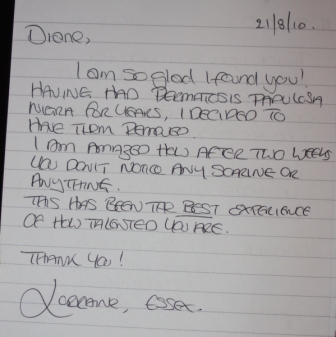 21/8/10.
Diane,
I am so glad I found you!
HAVING HAD DERMATOSIS PAPULOSA
NIGRA FOR YEARS, I DECIDED TO
HAVE THEM REMOVED.
I AM AMAZED HOW AFTER TWO WEEKS
YOU DON'T NOTICE ANY SCARING OR
ANYTHING.
THIS HAS BEEN THE BEST EXPERIENCE
OF HOW TALENTED YOU ARE.
THANK YOU!
Lorraine, ESSEX.